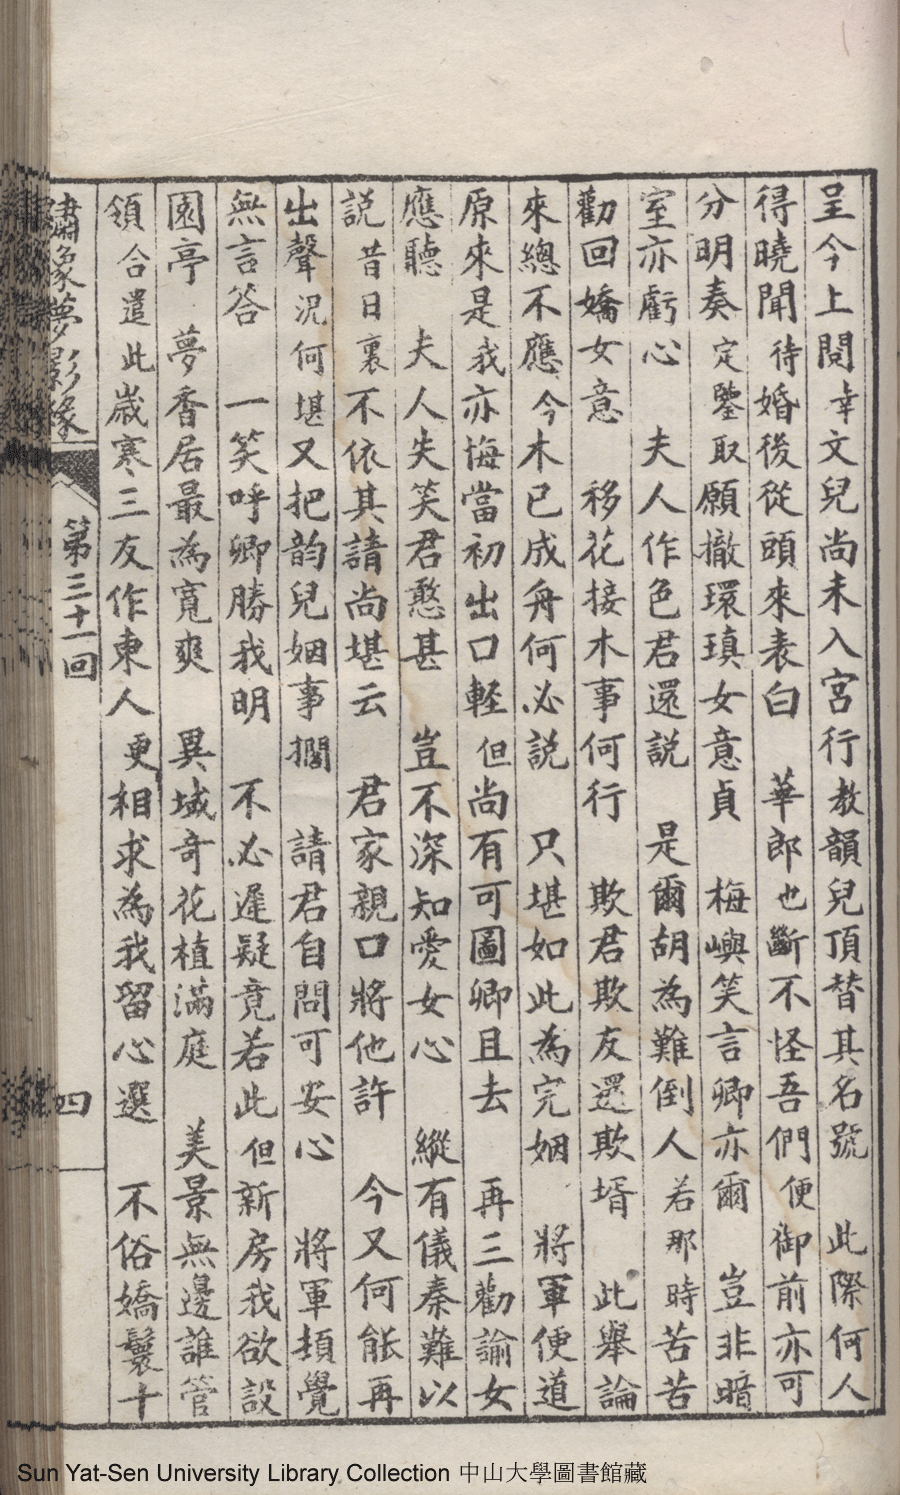 呈今上閱幸文兒尚未入宮行教韻兒頂替其名號　此際何人
得曉聞待婚後從頭來表白　華郎也斷不怪吾們便御前亦可
分明奏定鑒取願撤環瑱女意貞　梅嶼笑言卿亦爾　豈非暗
室亦虧心　夫人作色君還說　是爾胡為難倒人若那時苦苦
勸回嬌女意　移花接木事何行　欺君欺友還欺壻　此舉論
來總不應今木已成舟何必說　只堪如此為完姻　將軍便道
原來是我亦悔當初出口輕但尚有可圖卿且去　再三勸諭女
應聽　夫人失笑君憨甚　豈不深知愛女心　縱有儀秦難以
說昔日裏不依其請尚堪云　君家親口將他許　今又何能再
出聲況何堪又把韵兒姻事擱　請君自問可安心　將軍頓覺
無言答　一笑呼卿勝我明　不必遲疑竟若此但新房我欲設
園亭　夢香居最為寬爽　異域奇花植滿庭　美景無邊誰管
領合遣此歲寒三友作東人更相求為我留心選　不俗嬌鬟十
繡像夢影緣
第三十一回
四
Sun Yat-Sen University Library Collection 中山大學圖書館藏